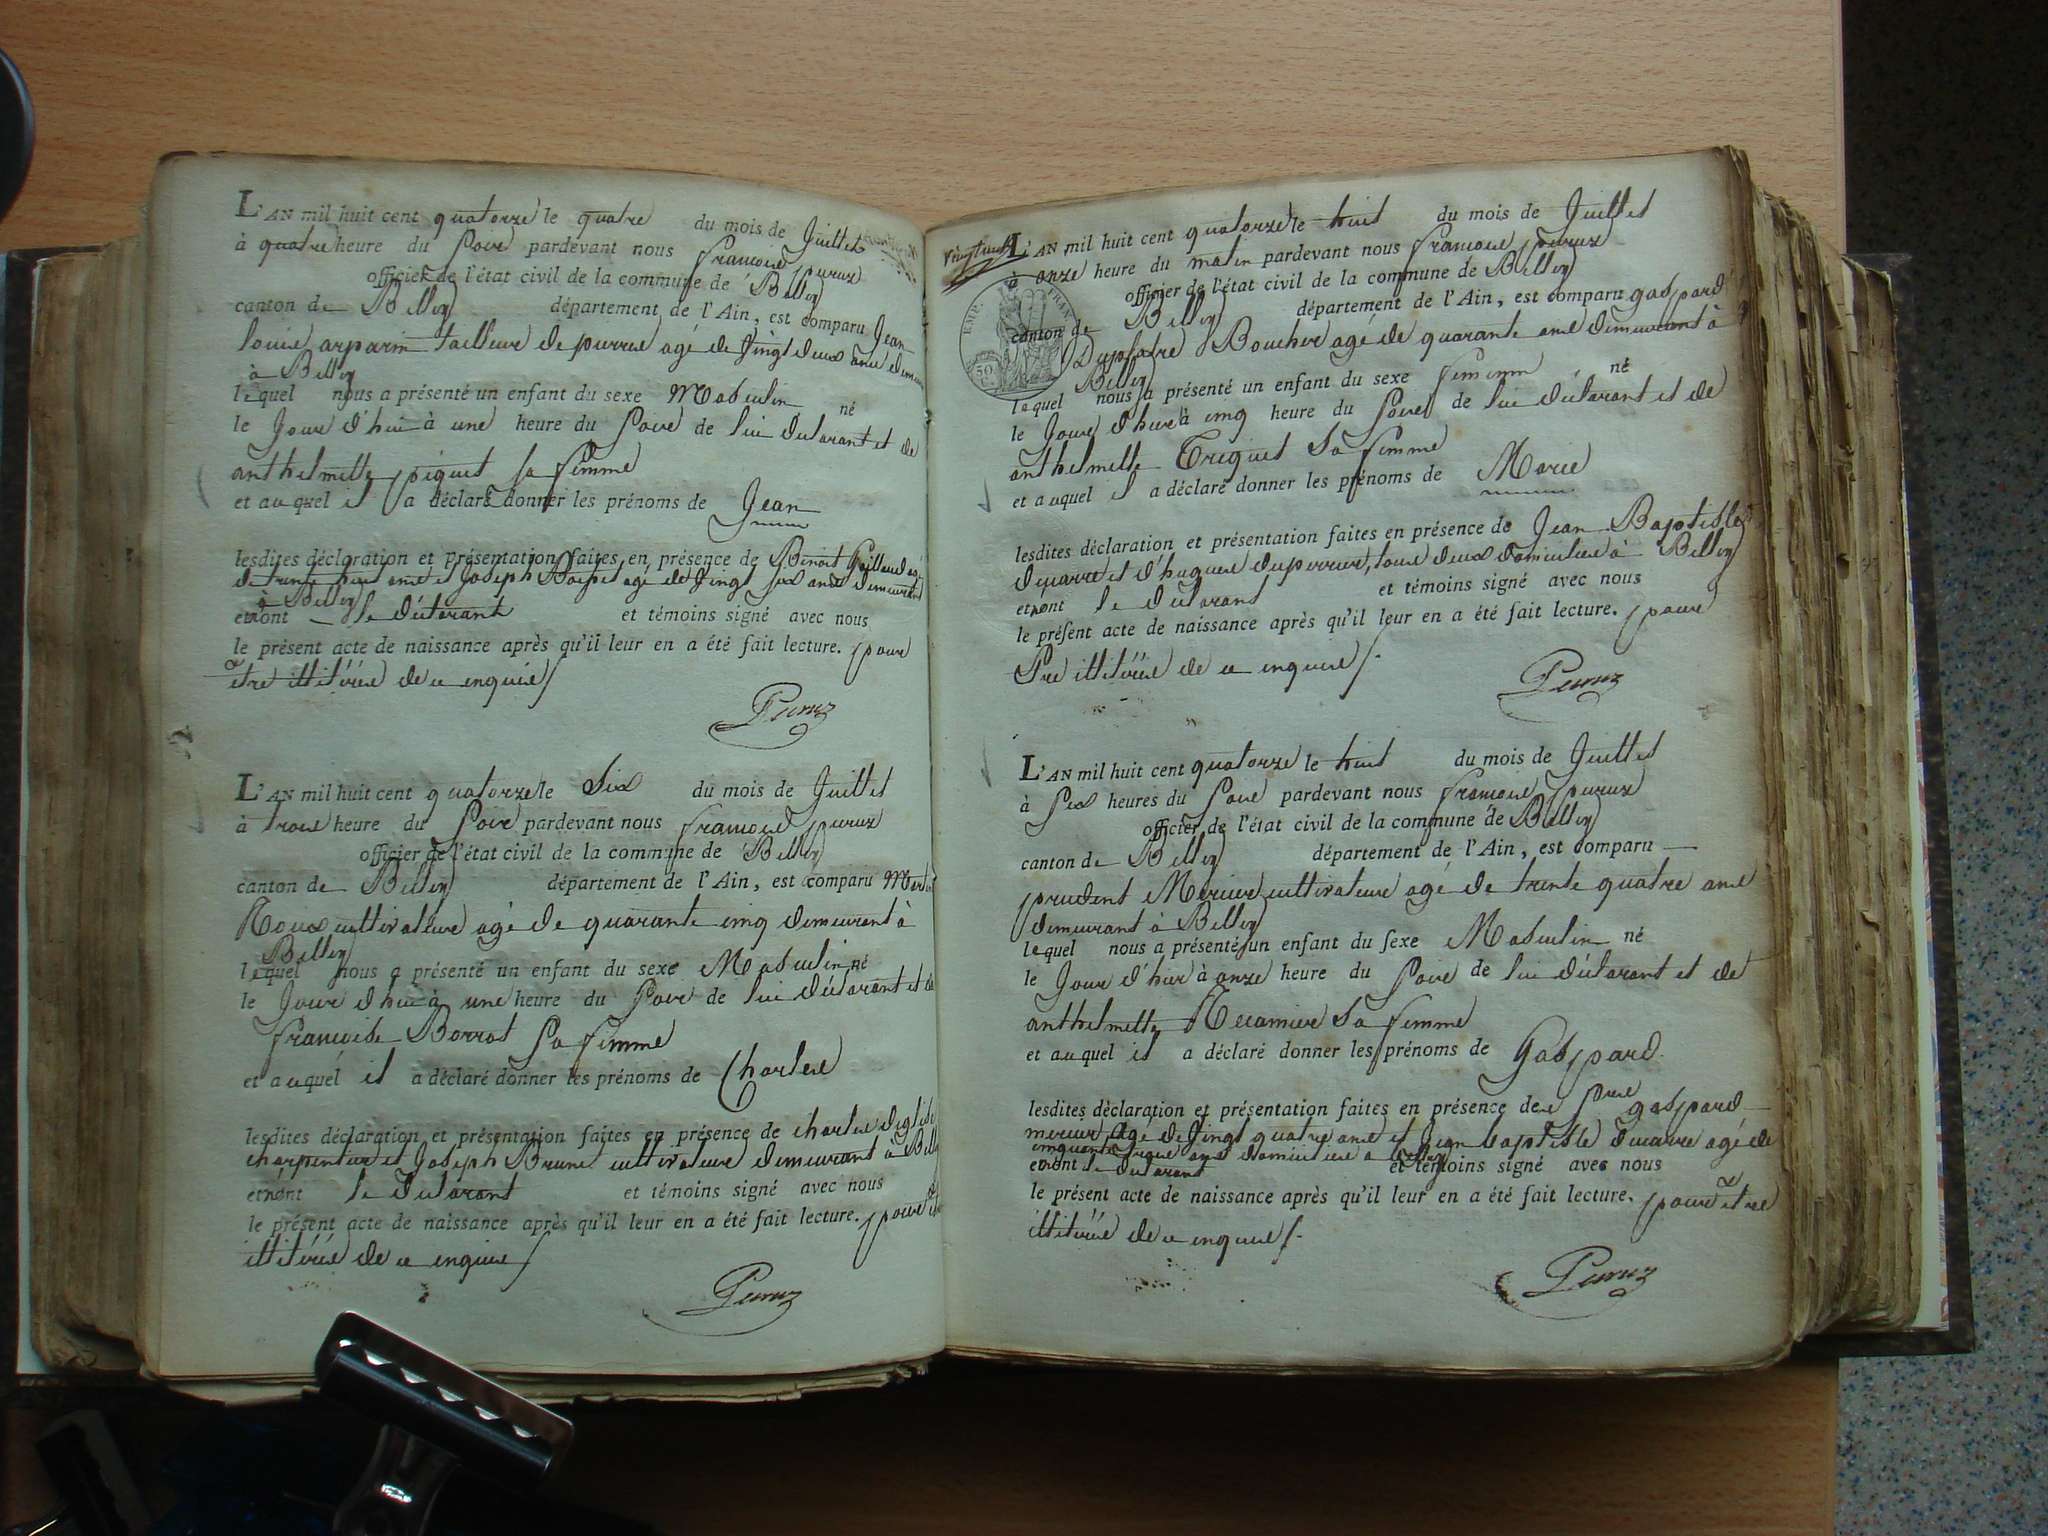 L'AN mil huit cent quatorze le quatre du mois de Juillet
à quatre heure du Soir pardevant nous francois peruz
officier de l'état civil de la commune de Belley
canton de Belley département de l'Ain, est comparu Jean
louis arparin tailleur de pierre agé de Vingt deux ans
à Belley
lequel nous a présenté un enfant du sexe Masculin né
le Jour d'hui à une heure du Soir de lui déclarant et de
anthelmette piquet sa femme
et auquel il a déclaré donner les prénoms de Jean
lesdites déclaration et présentation faites en présence de Benoit
de trente huit ans et Joseph agé de Vingt six ans demeurant
à Belley
et ont le déclarant et témoins signé avec nous
le présent acte de naissance après qu'il leur en a été fait lecture. pour
être illitérés de ce enquis
Peruz
L'AN mil huit cent quatorze le Six du mois de Juillet
à trois heure du Soir pardevant nous francois peruz
officier de l'état civil de la commune de Belley
canton de Belley département de l'Ain, est comparu
Roux cultivateur agé de quarante cinq demeurant à
Belley
lequel nous a présenté un enfant du sexe Masculin né
le Jour d'hui à une heure du Soir de lui déclarant et de
francoise Borrat sa femme
et auquel il a déclaré donner les prénoms de Charles
lesdites déclaration et présentation faites en présence de charles
charpentier et Joseph Brun cultivateur demeurant à
et ont le déclarant et témoins signé avec nous
le présent acte de naissance après qu'il leur en a été fait lecture. pour
illitérés de ce enquis
Peruz
L'AN mil huit cent quatorze le huit du mois de Juillet
à onze heure du matin pardevant nous francois peruz
officier de l'état civil de la commune de Belley
EMP. FRAN
canton de Belley département de l'Ain, est comparu gaspard
50 Boucher agé de quarante ans demeurant à
Belley
lequel nous a présenté un enfant du sexe feminin né
le Jour d'hier à cinq heure du Soir de lui déclarant et de
anthelmette Triquet Sa femme
et auquel il a déclaré donner les prénoms de Marie
lesdites déclaration et présentation faites en présence de Jean Baptiste
ducarre et d'hugues duperrier, tous deux domicilies à Belley
et ont le déclarant et témoins signé avec nous
le présent acte de naissance après qu'il leur en a été fait lecture. pour
être illitérés de ce enquis
Peruz
L'AN mil huit cent quatorze le huit du mois de Juillet
à Six heures du Soir pardevant nous francois peruz
officier de l'état civil de la commune de Belley
canton de Belley département de l'Ain, est comparu
prudent Mercier cultivateur agé de trente quatre ans
demeurant à Belley
lequel nous a présenté un enfant du sexe Masculin né
le Jour d'hier à onze heure du Soir de lui déclarant et de
anthelmette Recamier Sa femme
et auquel il a déclaré donner les prénoms de Gaspard
lesdites déclaration et présentation faites en présence de gaspard
mercier agé de Vingt quatre ans et Jean baptiste ducarre agé de
cinquante ans domicilies à Belley
et ont le déclarant et témoins signé avec nous
le présent acte de naissance après qu'il leur en a été fait lecture. pour être
illitérés de ce enquis
Peruz